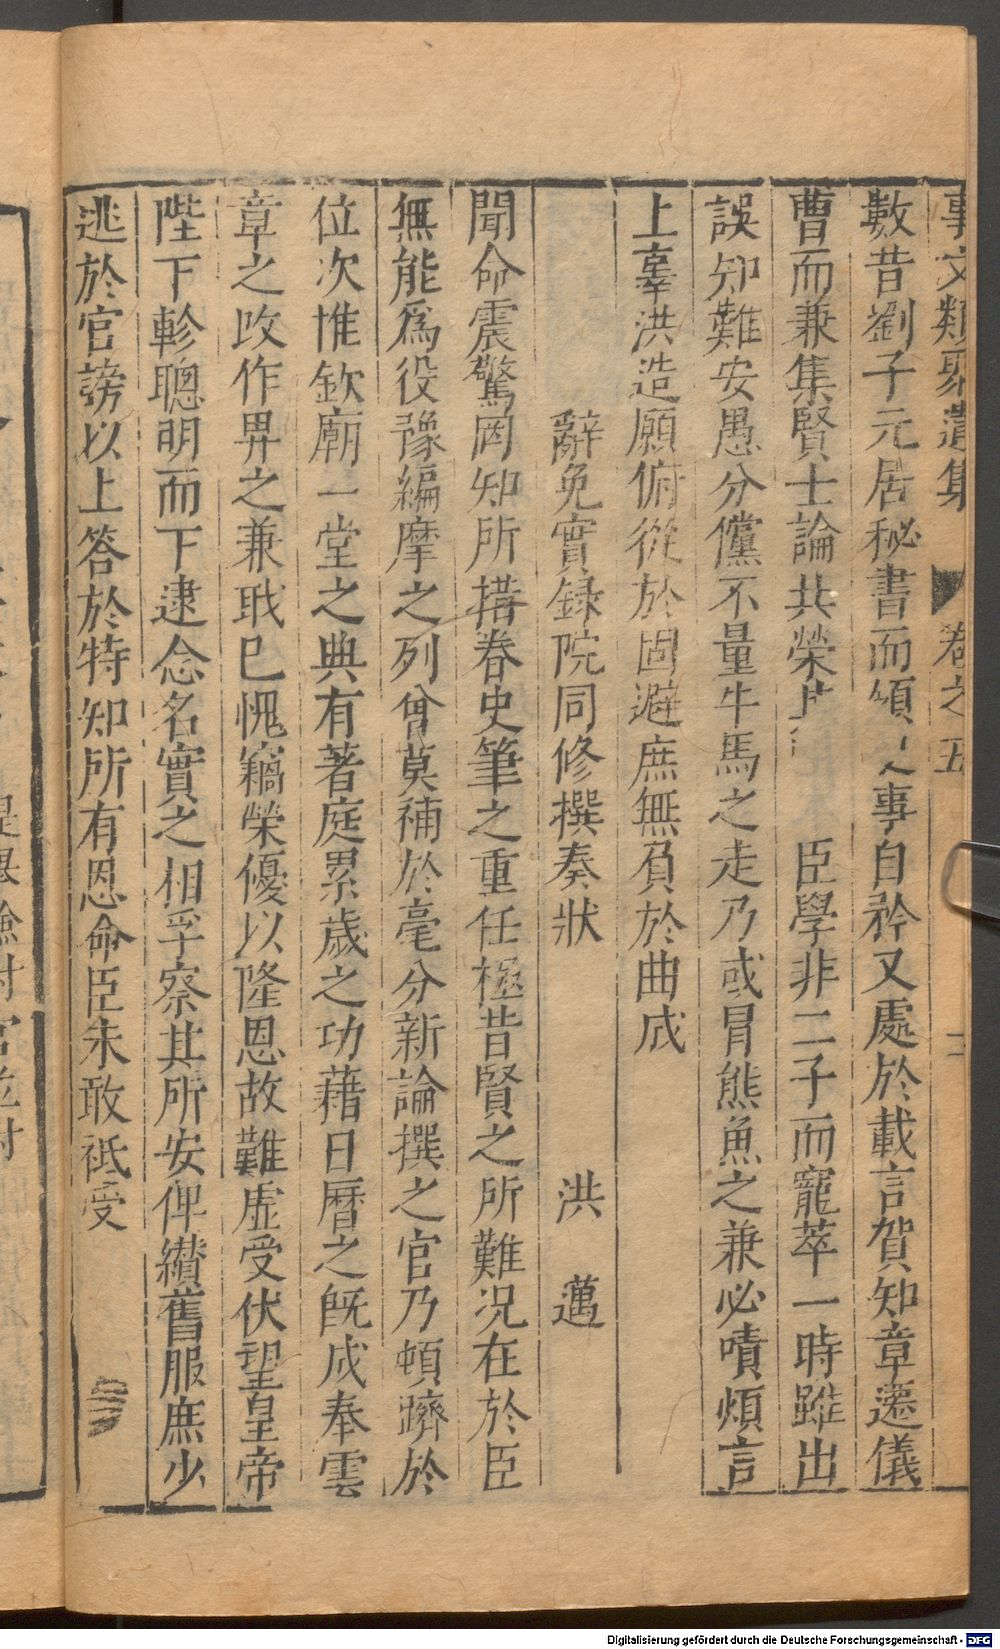 事文類聚遺集 卷之五
數昔劉子元居秘書而領 事自矜又處於載言賀知章遷儀
曹而兼集賢士論共榮 臣學非二子而寵萃一時雖出
誤知難安愚分儻不量牛馬之走乃或冐熊魚之兼必嘖煩言
上辜洪造願俯從於固避庶無負於曲成
辭免實録院同修撰奏狀 洪邁
聞命震驚罔知所措眷史筆之重任極昔賢之所難况在於臣
無能爲役豫編摩之列曾莫補於毫分新論撰之官乃頓躋於
位次惟欽廟一堂之典有著庭累歲之功藉日曆之旣成奉雲
章之攺作畀之兼職已愧竊榮優以隆恩故難虛受伏望皇帝
陛下軫聰明而下逮念名實之相孚察其所安俾纉舊服庶少
逃於官謗以上答於特知所有恩命臣未敢祗受
Digitalisierung gefördert durch die Deutsche Forschungsgemeinschaft - DFG